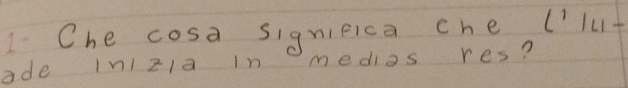 1- Che cosa significa che l'Ili-
ade inizia in medias res?